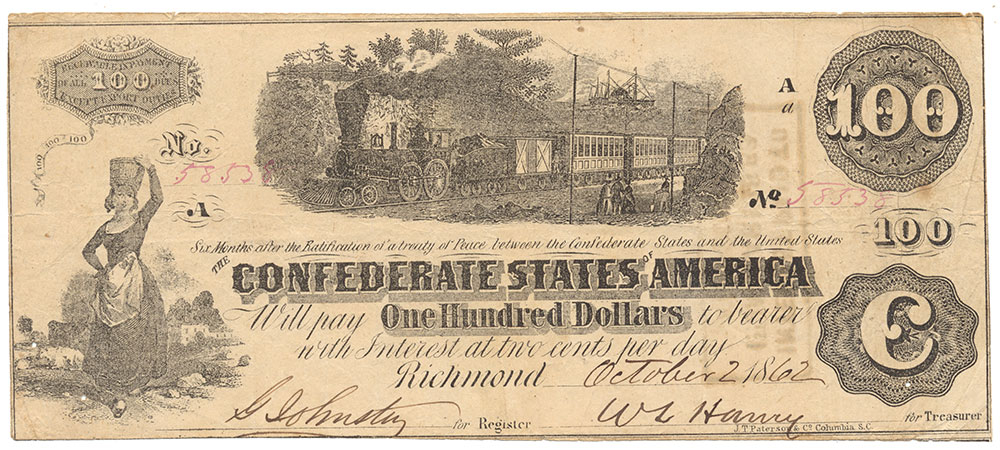 RECEIVABLE IN PAYMENT
OF ALL 100 DUES
EXCEPT EXPORT DUTIES
100 100 100
No.
58538
A
A
a
100
No.
58538
100
Six Months after the Ratification of a treaty of Peace between the Confederate States and the United States
THE CONFEDERATE STATES OF AMERICA
Will pay One Hundred Dollars to bearer
with Interest at two cents per day
Richmond October 2 1862
C
for Register
for Treasurer
J.T. Paterson & Co. Columbia. S.C.